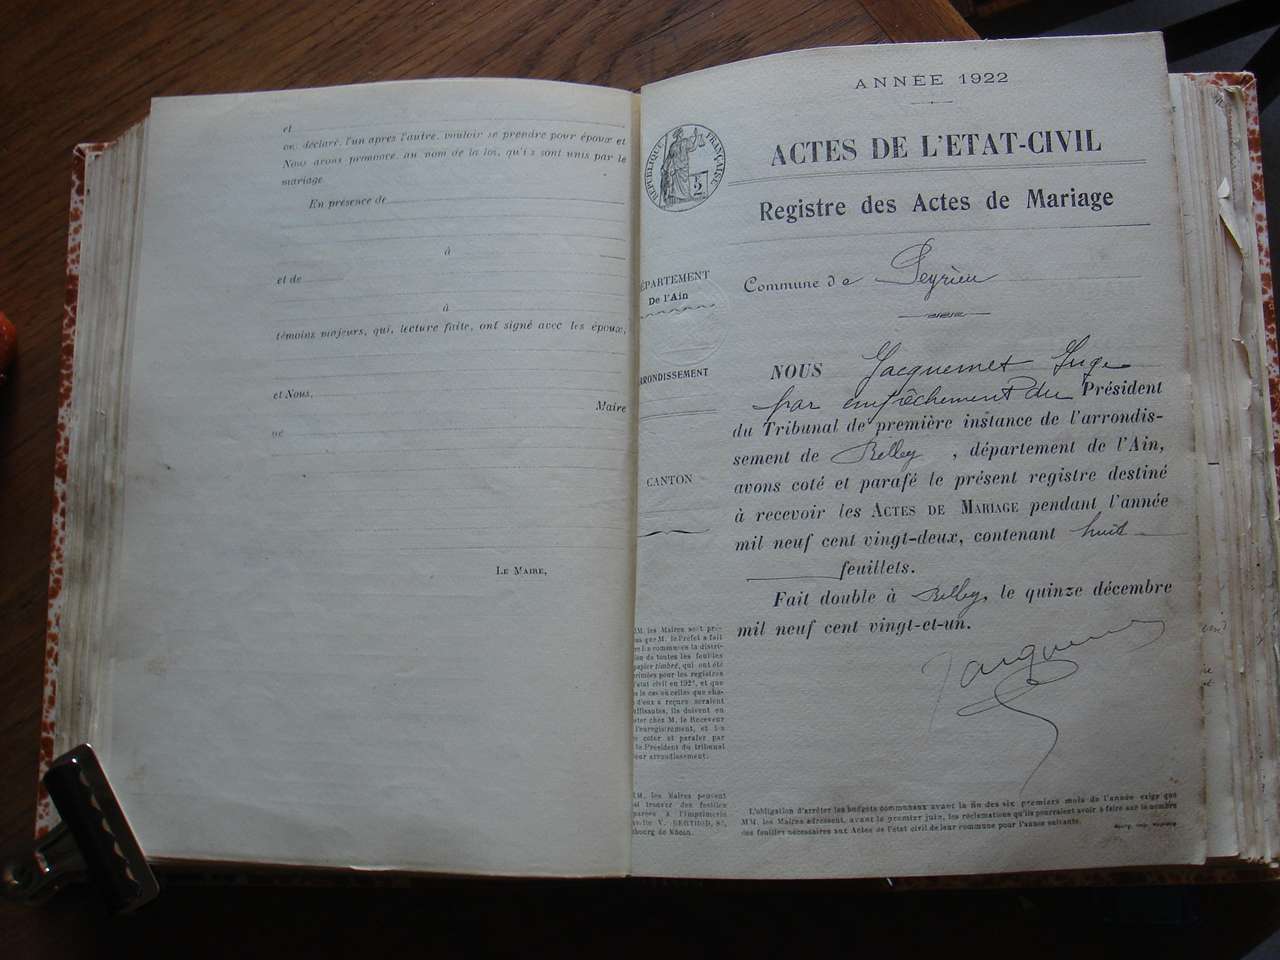 et
ont déclaré, l'un après l'autre, vouloir se prendre pour époux et
Nous avons prononcé, au nom de la loi, qu'ils sont unis par le
mariage.
En présence de
à
et de
à
témoins majeurs, qui, lecture faite, ont signé avec les époux,
et Nous,
Maire
de
LE MAIRE,
ANNÉE 1922
RÉPUBLIQUE FRANÇAISE
ACTES DE L'ETAT-CIVIL
Registre des Actes de Mariage
DÉPARTEMENT
De l'Ain
RRONDISSEMENT
CANTON
Commune de Peyrieu
NOUS Jacquemet Juge
par empêchement du Président
du Tribunal de première instance de l'arrondis-
sement de Belley, département de l'Ain,
avons coté et parafé le présent registre destiné
à recevoir les ACTES DE MARIAGE pendant l'année
mil neuf cent vingt-deux, contenant huit
feuillets.
Fait double à Belley, le quinze décembre
mil neuf cent vingt-et-un.
Jacquemet
MM. les Maires sont pré-
us que M. le Préfet a fait
communes la distri-
on de toutes les feuilles
papier timbré, qui ont été
rimées pour les registres
l'état civil en 192, et que
s le cas où celles que cha-
d'eux a reçues seraient
uffisantes, ils doivent en
eter chez M. le Receveur
l'enregistrement, et les
e coter et parafer par
le Président du tribunal
eur arrondissement.
MM. les Maires peuvent
si trouver des feuilles
parées à l'Imprimerie
V. BERTHOD,
bourg de Mâcon.
L'obligation d'arrêter les budgets communaux avant la fin des six premiers mois de l'année exige que
MM. les Maires adressent, avant le premier juin, les réclamations qu'ils pourraient avoir à faire sur le nombre
des feuilles nécessaires aux Actes de l'état civil de leur commune pour l'année suivante.